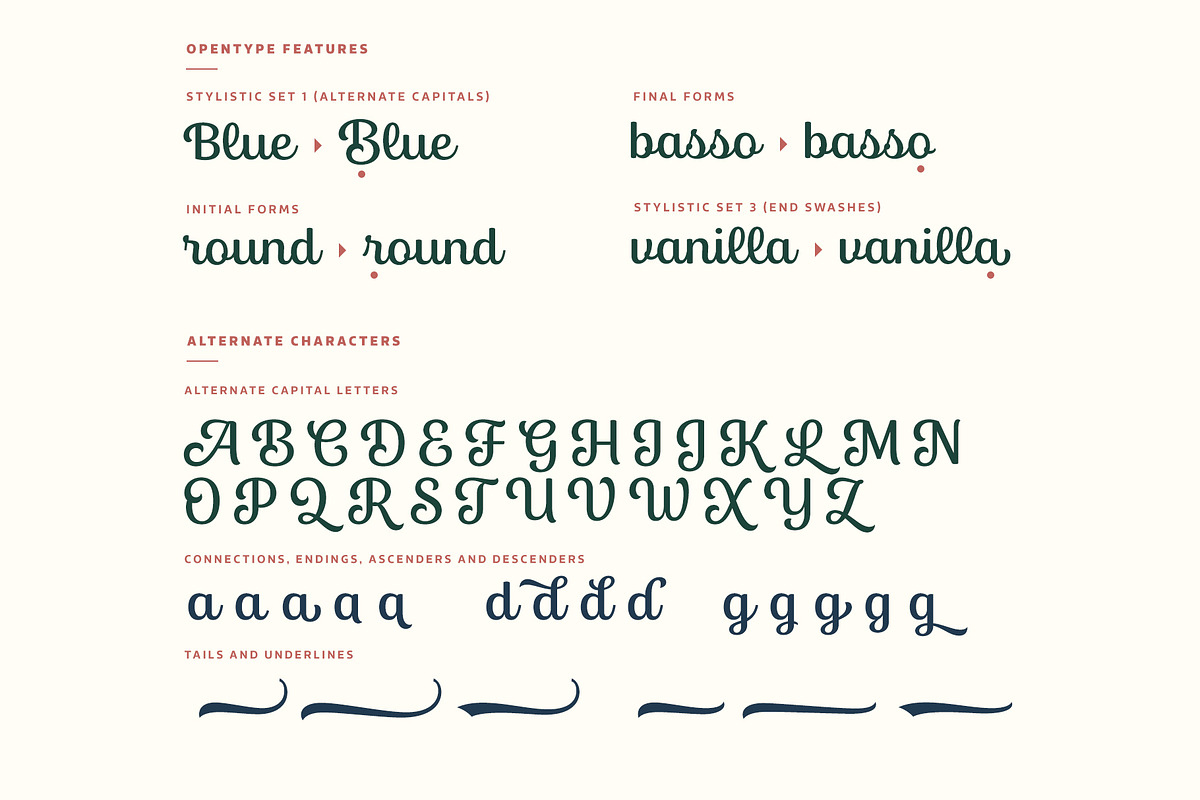 OPENTYPE FEATURES
STYLISTIC SET 1 (ALTERNATE CAPITALS)
Blue Blue
FINAL FORMS
basso basso
INITIAL FORMS
round round
STYLISTIC SET 3 (END SWASHES)
vanilla vanilla
ALTERNATE CHARACTERS
ALTERNATE CAPITAL LETTERS
A B C D E F G H I J K L M N
O P Q R S T U V W X Y Z
CONNECTIONS, ENDINGS, ASCENDERS AND DESCENDERS
a a a a a d d d d g g g g g
TAILS AND UNDERLINES